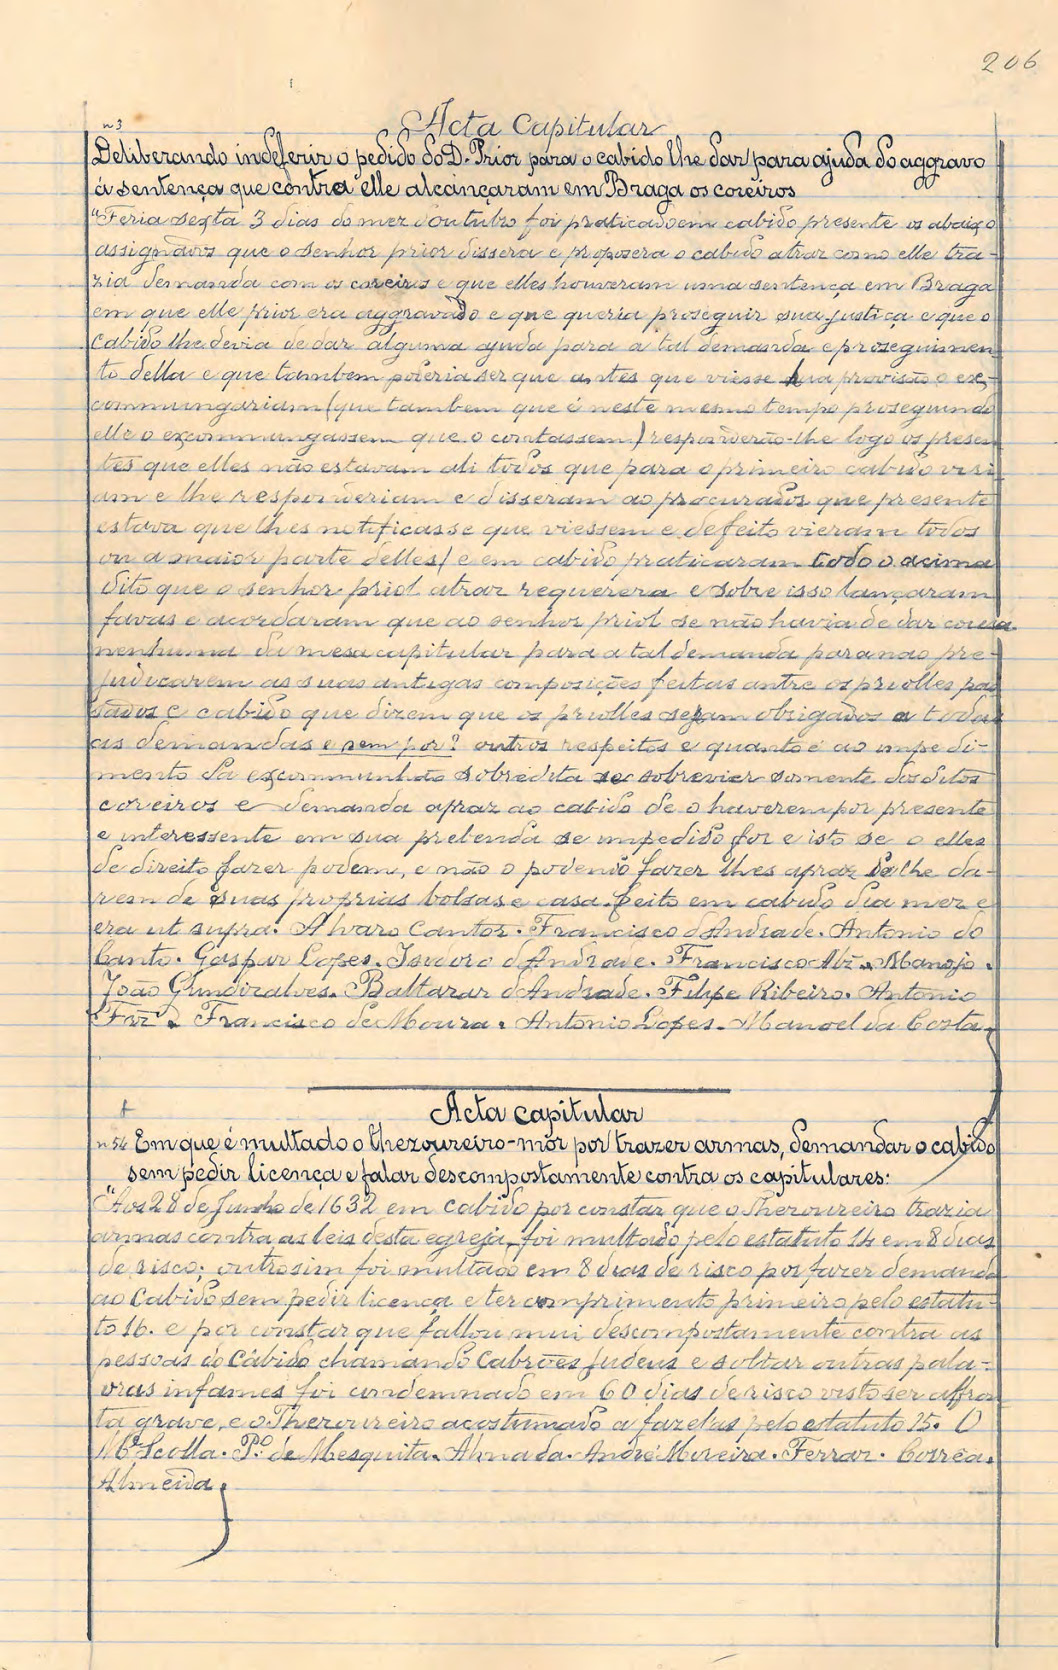 206
nº3
Acta Capitular
Deliberando indeferir o pedido do D. Prior para o cabido lhe dar para ajuda do aggravo
á sentença que contra elle alcançaram em Braga os coreiros
"Feria sexta 3 dias do mez d'outubro foi praticado em cabido presente os abaixo
assignados que o senhor prior dissera e proposera o cabido atraz como elle tra-
zia demanda com os coreiros e que elles houveram uma sentença em Braga
em que elle prior era aggravado e que queria proseguir sua justiça e que o
Cabido lhe devia de dar alguma ajuda para a tal demanda e proseguimen
to della e que tambem poderia ser que antes que viesse sua provisão o ex-
commungariam (que tambem que é neste mesmo tempo proseguindo
elle o excommungassem que o contassem) responderão-lhe logo os presen
tes que elles não estavam ali todos que para o primeiro cabido viri
am e lhe responderiam e disseram ao procurador que presente
estava que lhes notificasse que viessem e defeito vieram todos
ou a maior parte delles/ e em cabido praticaram todo o acima
dito que o senhor priol atraz requerera e sobre isso lançaram
favas e acordaram que ao senhor priol se não havia de dar cousa
nenhuma da mesa capitular para a tal demanda para nao pre-
judicarem as suas antigas composições feitas antre os priolles pas
sados e cabido que dizem que os priolles sejam obrigados a todas
as demandas e sem por? outros respeitos e quanto é ao impedi-
mento da excommunhão sobredita se sobrevier somente dos ditos
coreiros e demanda apraz ao cabido de o haverem por presente
e interessente em sua prebenda se impedido for e isto se o elles
de direito fazer podem, e não o podendo fazer lhes apraz de lhe da-
rem de suas proprias bolsas e casa. feito em cabido dia mez e
era ut supra. Alvaro Cantor. Francisco d'Andrade. Antonio do
Canto. Gaspar Lopes. Isidoro d'Andrade. Francisco Abz. Manojo.
João Gundiçalves. Baltazar d'Andrade. Filipe Ribeiro. Antonio
Frz. Francisco de Moura. Antonio Lopes. Manoel da Costa.
Acta capitular
nº54 Em que é multado o thezoureiro-mór por trazer armas, demandar o cabido
sem pedir licença e falar descompostamente contra os capitulares:
"Aos 28 de Junho de 1632 em cabido por constar que o Thezoureiro trazia
armas contra as leis desta egreja, foi multado pelo estatuto 14 em 8 dias
de risco; outrosim foi multado em 8 dias de risco por fazer demanda
ao Cabido sem pedir licença e ter comprimento primeiro pelo estatu-
to 16. e por constar que fallou mui descompostamente contra as
pessoas do Cabido chamando Cabrões judeus e soltar outras pala-
vras infames foi condemnado em 60 dias de risco visto ser affron
ta grave, e o Thezoureiro acostumado a fazelas pelo estatuto 15. O
Mº Scolla. Pº. de Mesquita. Almada. André Moreira. Ferraz. Corrêa.
Almeida.